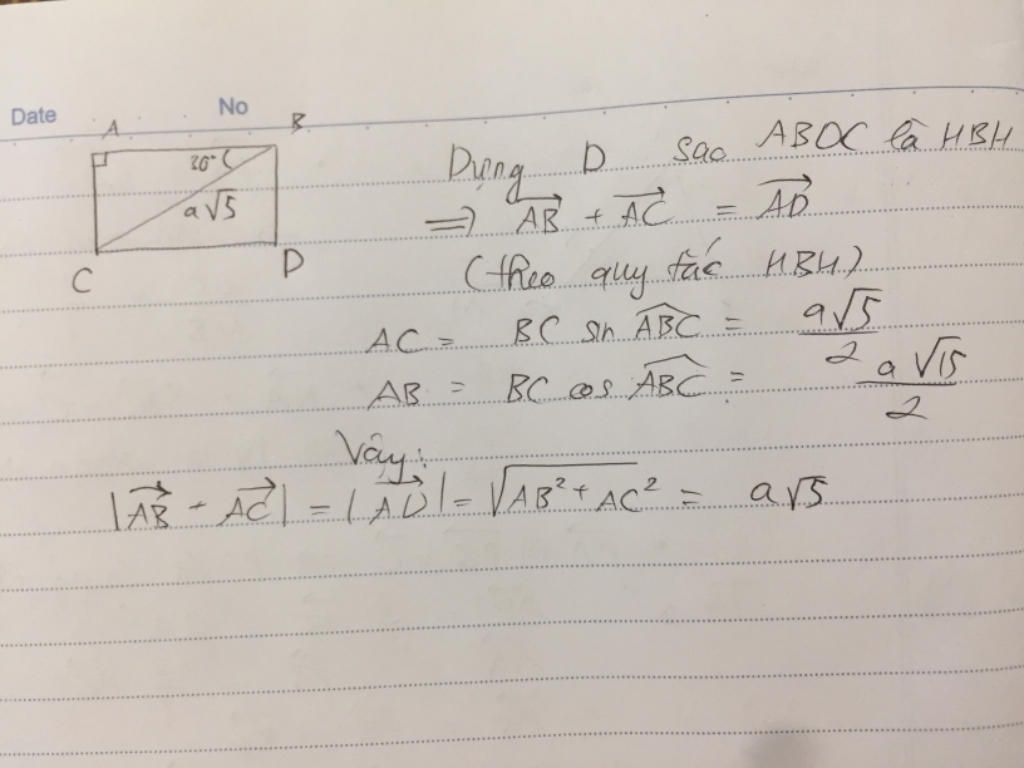 Date No
A B
30°
a√5
C D
Dựng D sao ABDC là HBH
=> AB + AC = AD
(theo quy tắc HBH)
AC = BC sin ABC = a√5/2
AB = BC cos ABC = a√15/2
Vậy:
|AB + AC| = |AD| = √AB² + AC² = a√5